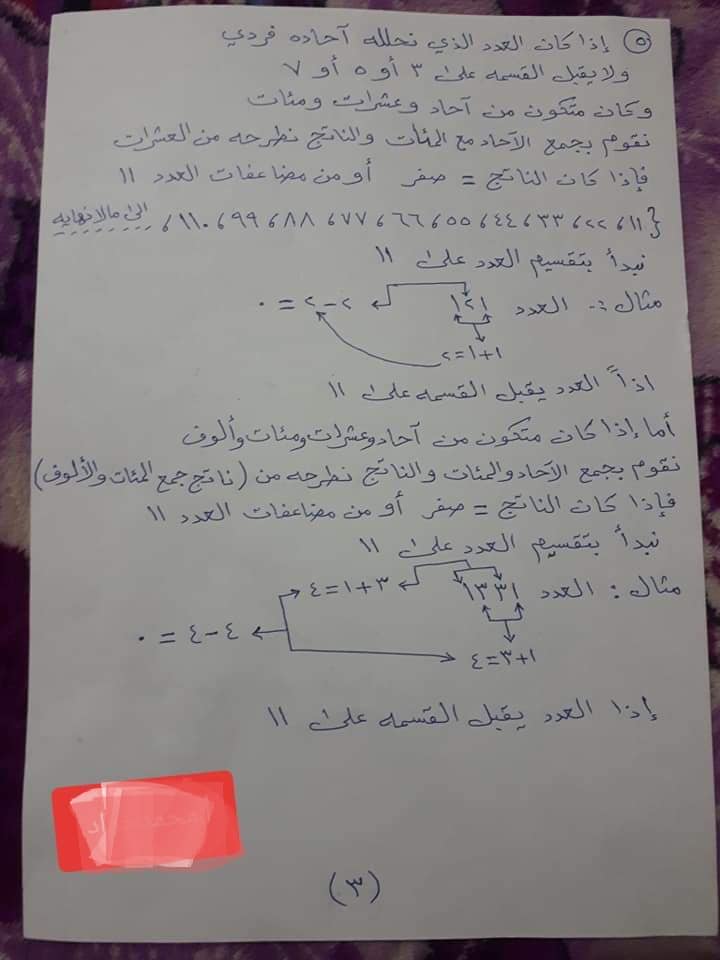 ٥ إذا كان العدد الذي نحلله آحاده فردي
ولا يقبل القسمه على ٣ أو ٥ أو ٧
وكان متكون من آحاد وعشرات ومئات
نقوم بجمع الآحاد مع المئات والناتج نطرحه من العشرات
فإذا كان الناتج = صفر أو من مضاعفات العدد ١١
{١١، ٢٢، ٣٣، ٤٤، ٥٥، ٦٦، ٧٧، ٨٨، ٩٩، ١١٠، الى مالانهايه
نبدأ بتقسيم العدد على ١١
مثال :- العدد ١٢١ ٢-٢ = ٠
١+١=٢
اذاً العدد يقبل القسمه على ١١
أما إذا كان متكون من آحاد وعشرات ومئات وألوف
نقوم بجمع الآحاد والمئات والناتج نطرحه من (ناتج جمع المئات والألوف)
فإذا كان الناتج = صفر أو من مضاعفات العدد ١١
نبدأ بتقسيم العدد على ١١
مثال : العدد ١٣٣١ ٣+١=٤
٤-٤ = ٠
١+٣=٤
إذا العدد يقبل القسمه على ١١
(٣)